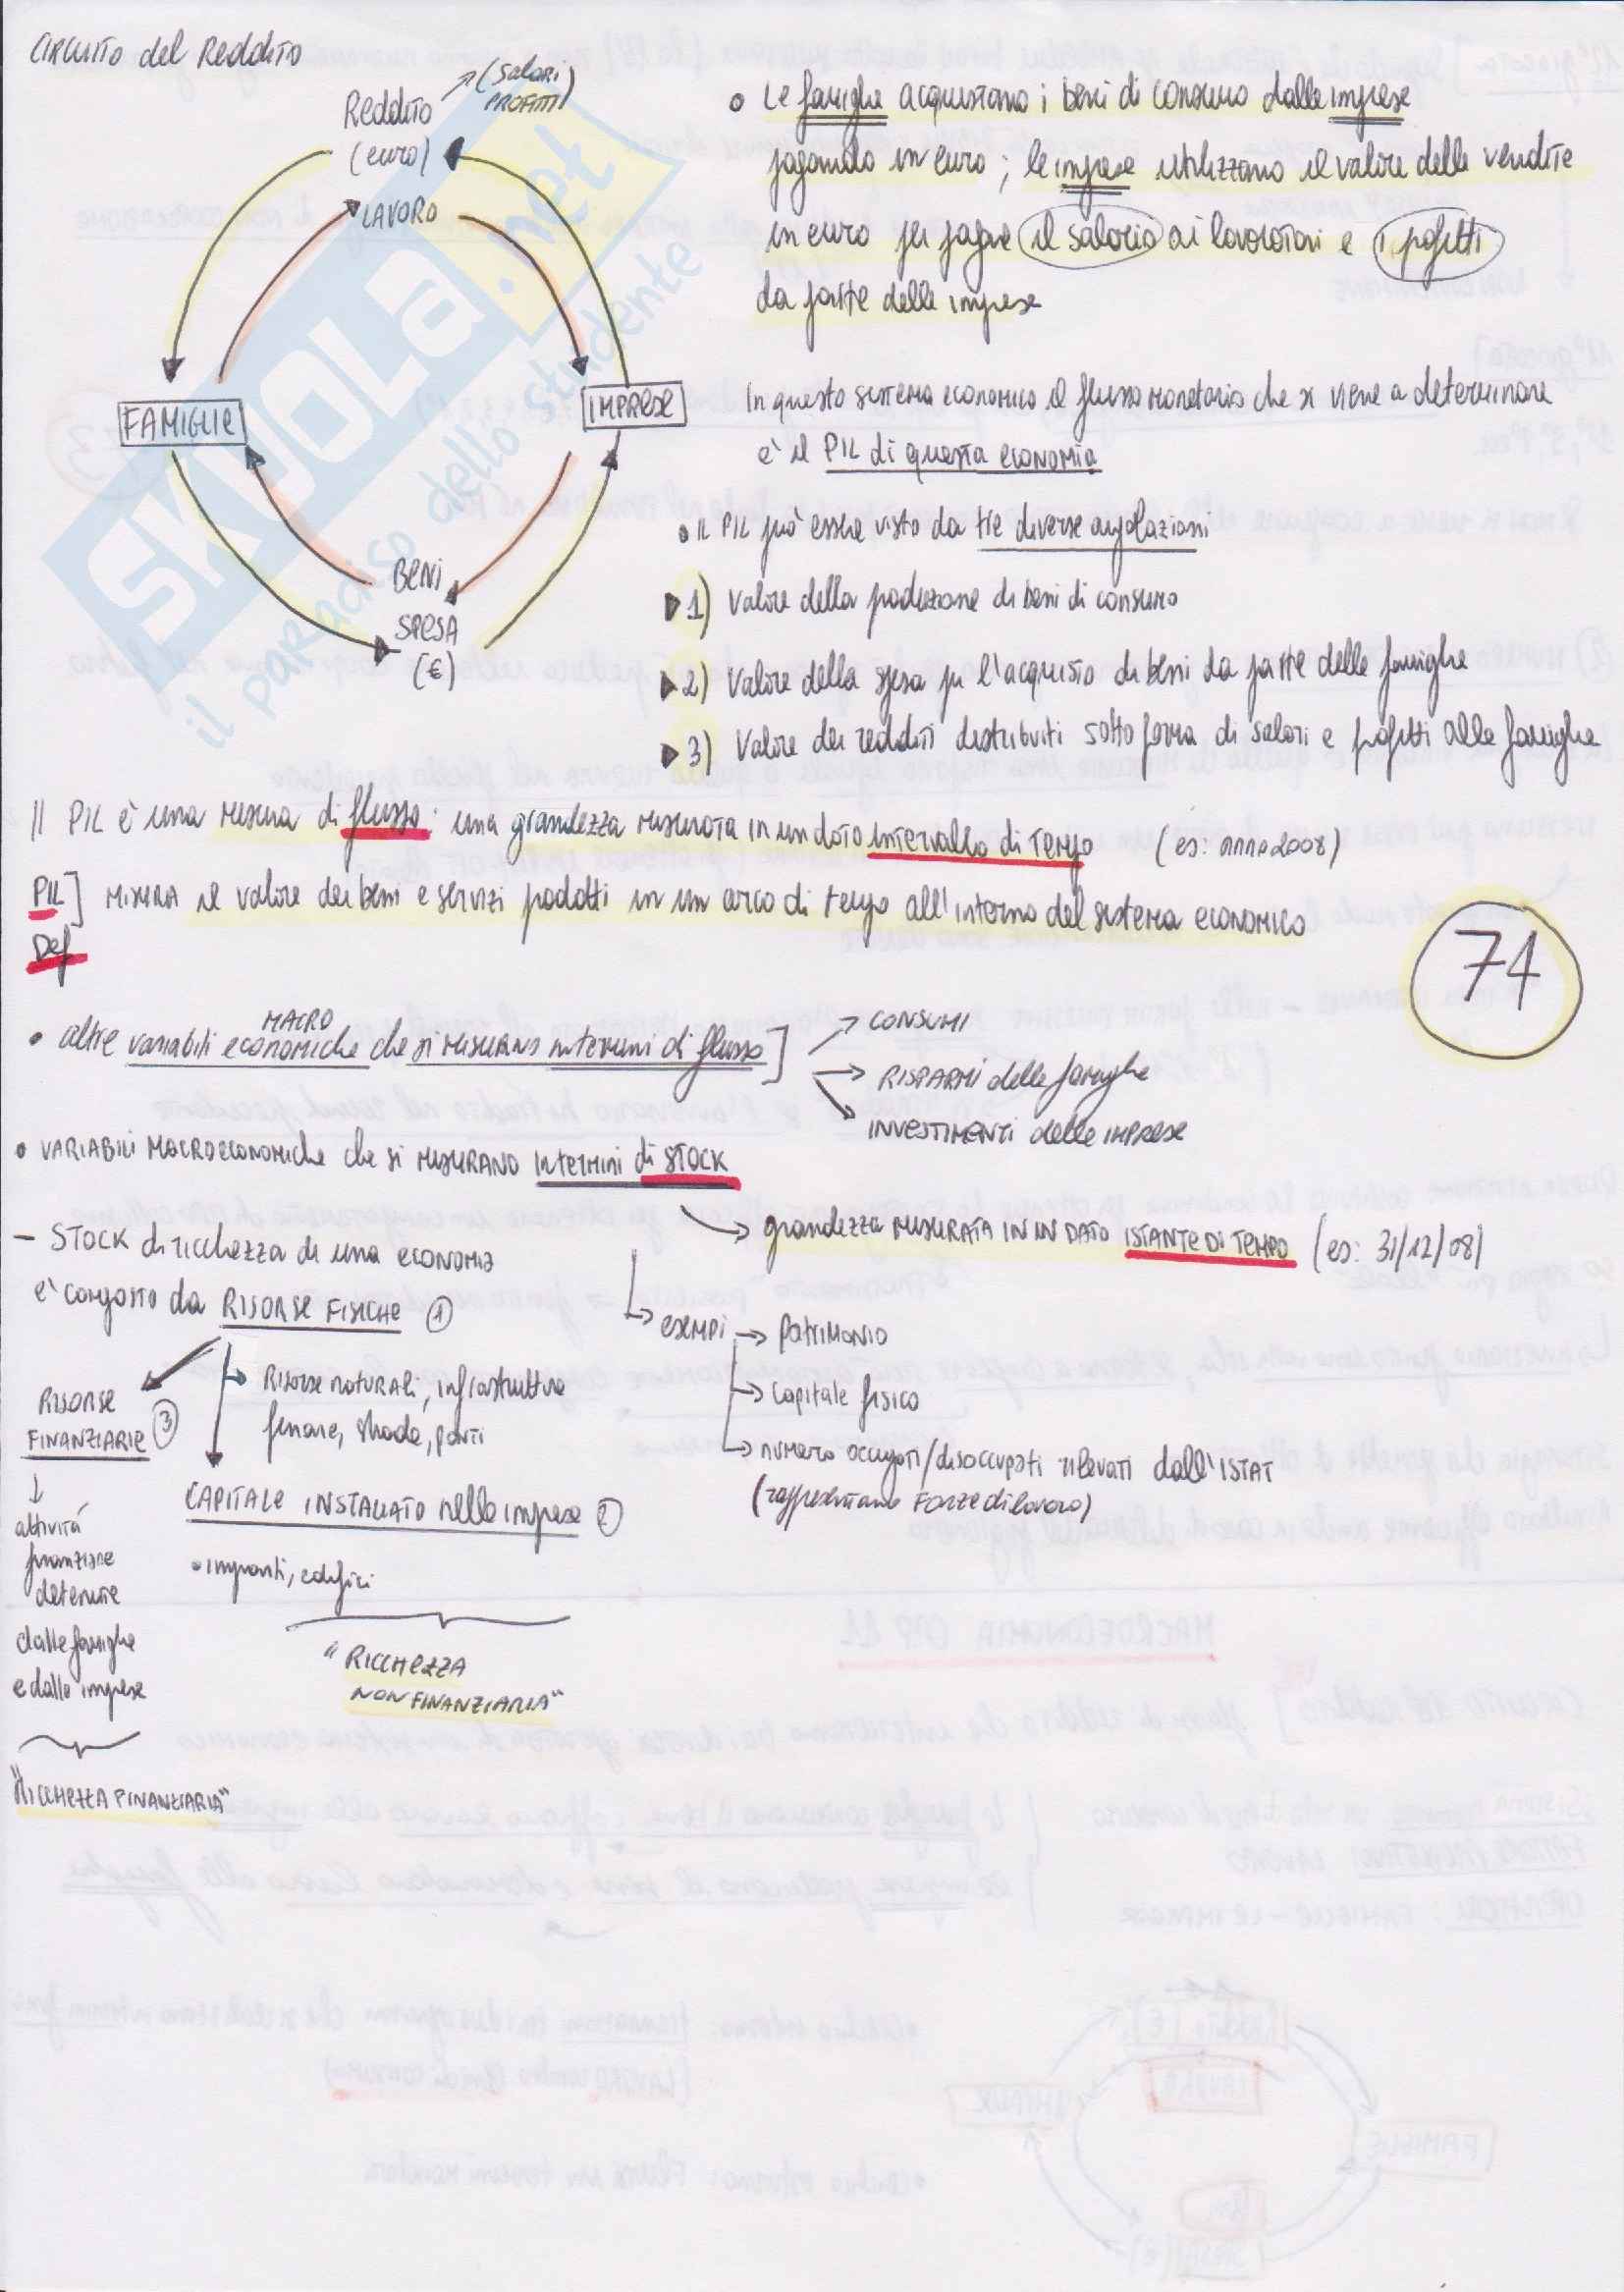 CIRCUITO del Reddito
Reddito
(euro)
(Salari
PROFITTI)
LAVORO
FAMIGLIE
IMPRESE
BENI
SPESA
(€)
• Le famiglie acquistano i beni di consumo dalle imprese
pagando in euro; le imprese utilizzano il valore delle vendite
in euro per pagare il salario ai lavoratori e i profitti
da parte delle imprese
In questo sistema economico il flusso monetario che si viene a determinare
è il PIL di questa economia
• IL PIL può essere visto da tre diverse angolazioni
1) Valore della produzione di beni di consumo
2) Valore della spesa per l'acquisto di beni da parte delle famiglie
3) Valore dei redditi distribuiti sotto forma di salari e profitti alle famiglie
Il PIL è una misura di flusso: una grandezza misurata in un dato intervallo di tempo (es: anno 2008)
PIL] MISURA il valore dei beni e servizi prodotti in un arco di tempo all'interno del sistema economico
Def
74
• altre variabili MACRO economiche che si misurano in termini di flusso]
→ CONSUMI
→ RISPARMI delle famiglie
→ INVESTIMENTI delle IMPRESE
• VARIABILI MACROECONOMICHE che si MISURANO in termini di STOCK
→ grandezza MISURATA IN UN DATO ISTANTE DI TEMPO (es: 31/12/08)
– STOCK di ricchezza di una economia
è composto da RISORSE FISICHE 1
esempi → patrimonio
→ capitale fisico
→ numero occupati/disoccupati rilevati dall'ISTAT
(rappresentano Forze di lavoro)
Risorse naturali, infrastrutture
ferrovie, strade, ponti
RISORSE
FINANZIARIE 3
CAPITALE INSTALLATO nelle imprese 2
• impianti, edifici
attività
finanziarie
detenute
dalle famiglie
e dalle imprese
"RICCHEZZA
NON FINANZIARIA"
"RICCHEZZA FINANZIARIA"
SKUOLA.net
il paradiso dello studente